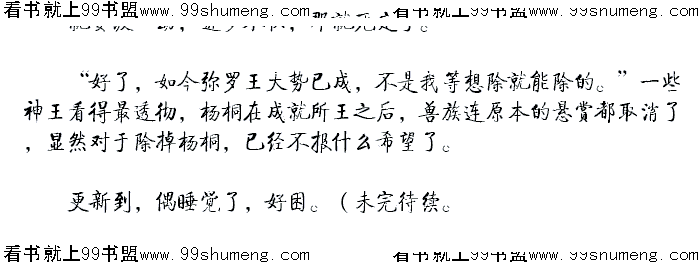 看书就上99书盟www.99shumeng.com 看书就上99书盟www.99shumeng.com
“好了，如今弥罗王大势已成，不是我等想除就能除的。”一些
神王看得最透彻，杨桐在成就所王之后，兽族连原本的悬赏都取消了
，显然对于除掉杨桐，已经不报什么希望了。
更新到，偶睡觉了，好困。（未完待续。
看书就上99书盟www.99shumeng.com 看书就上99书盟www.99shumeng.com